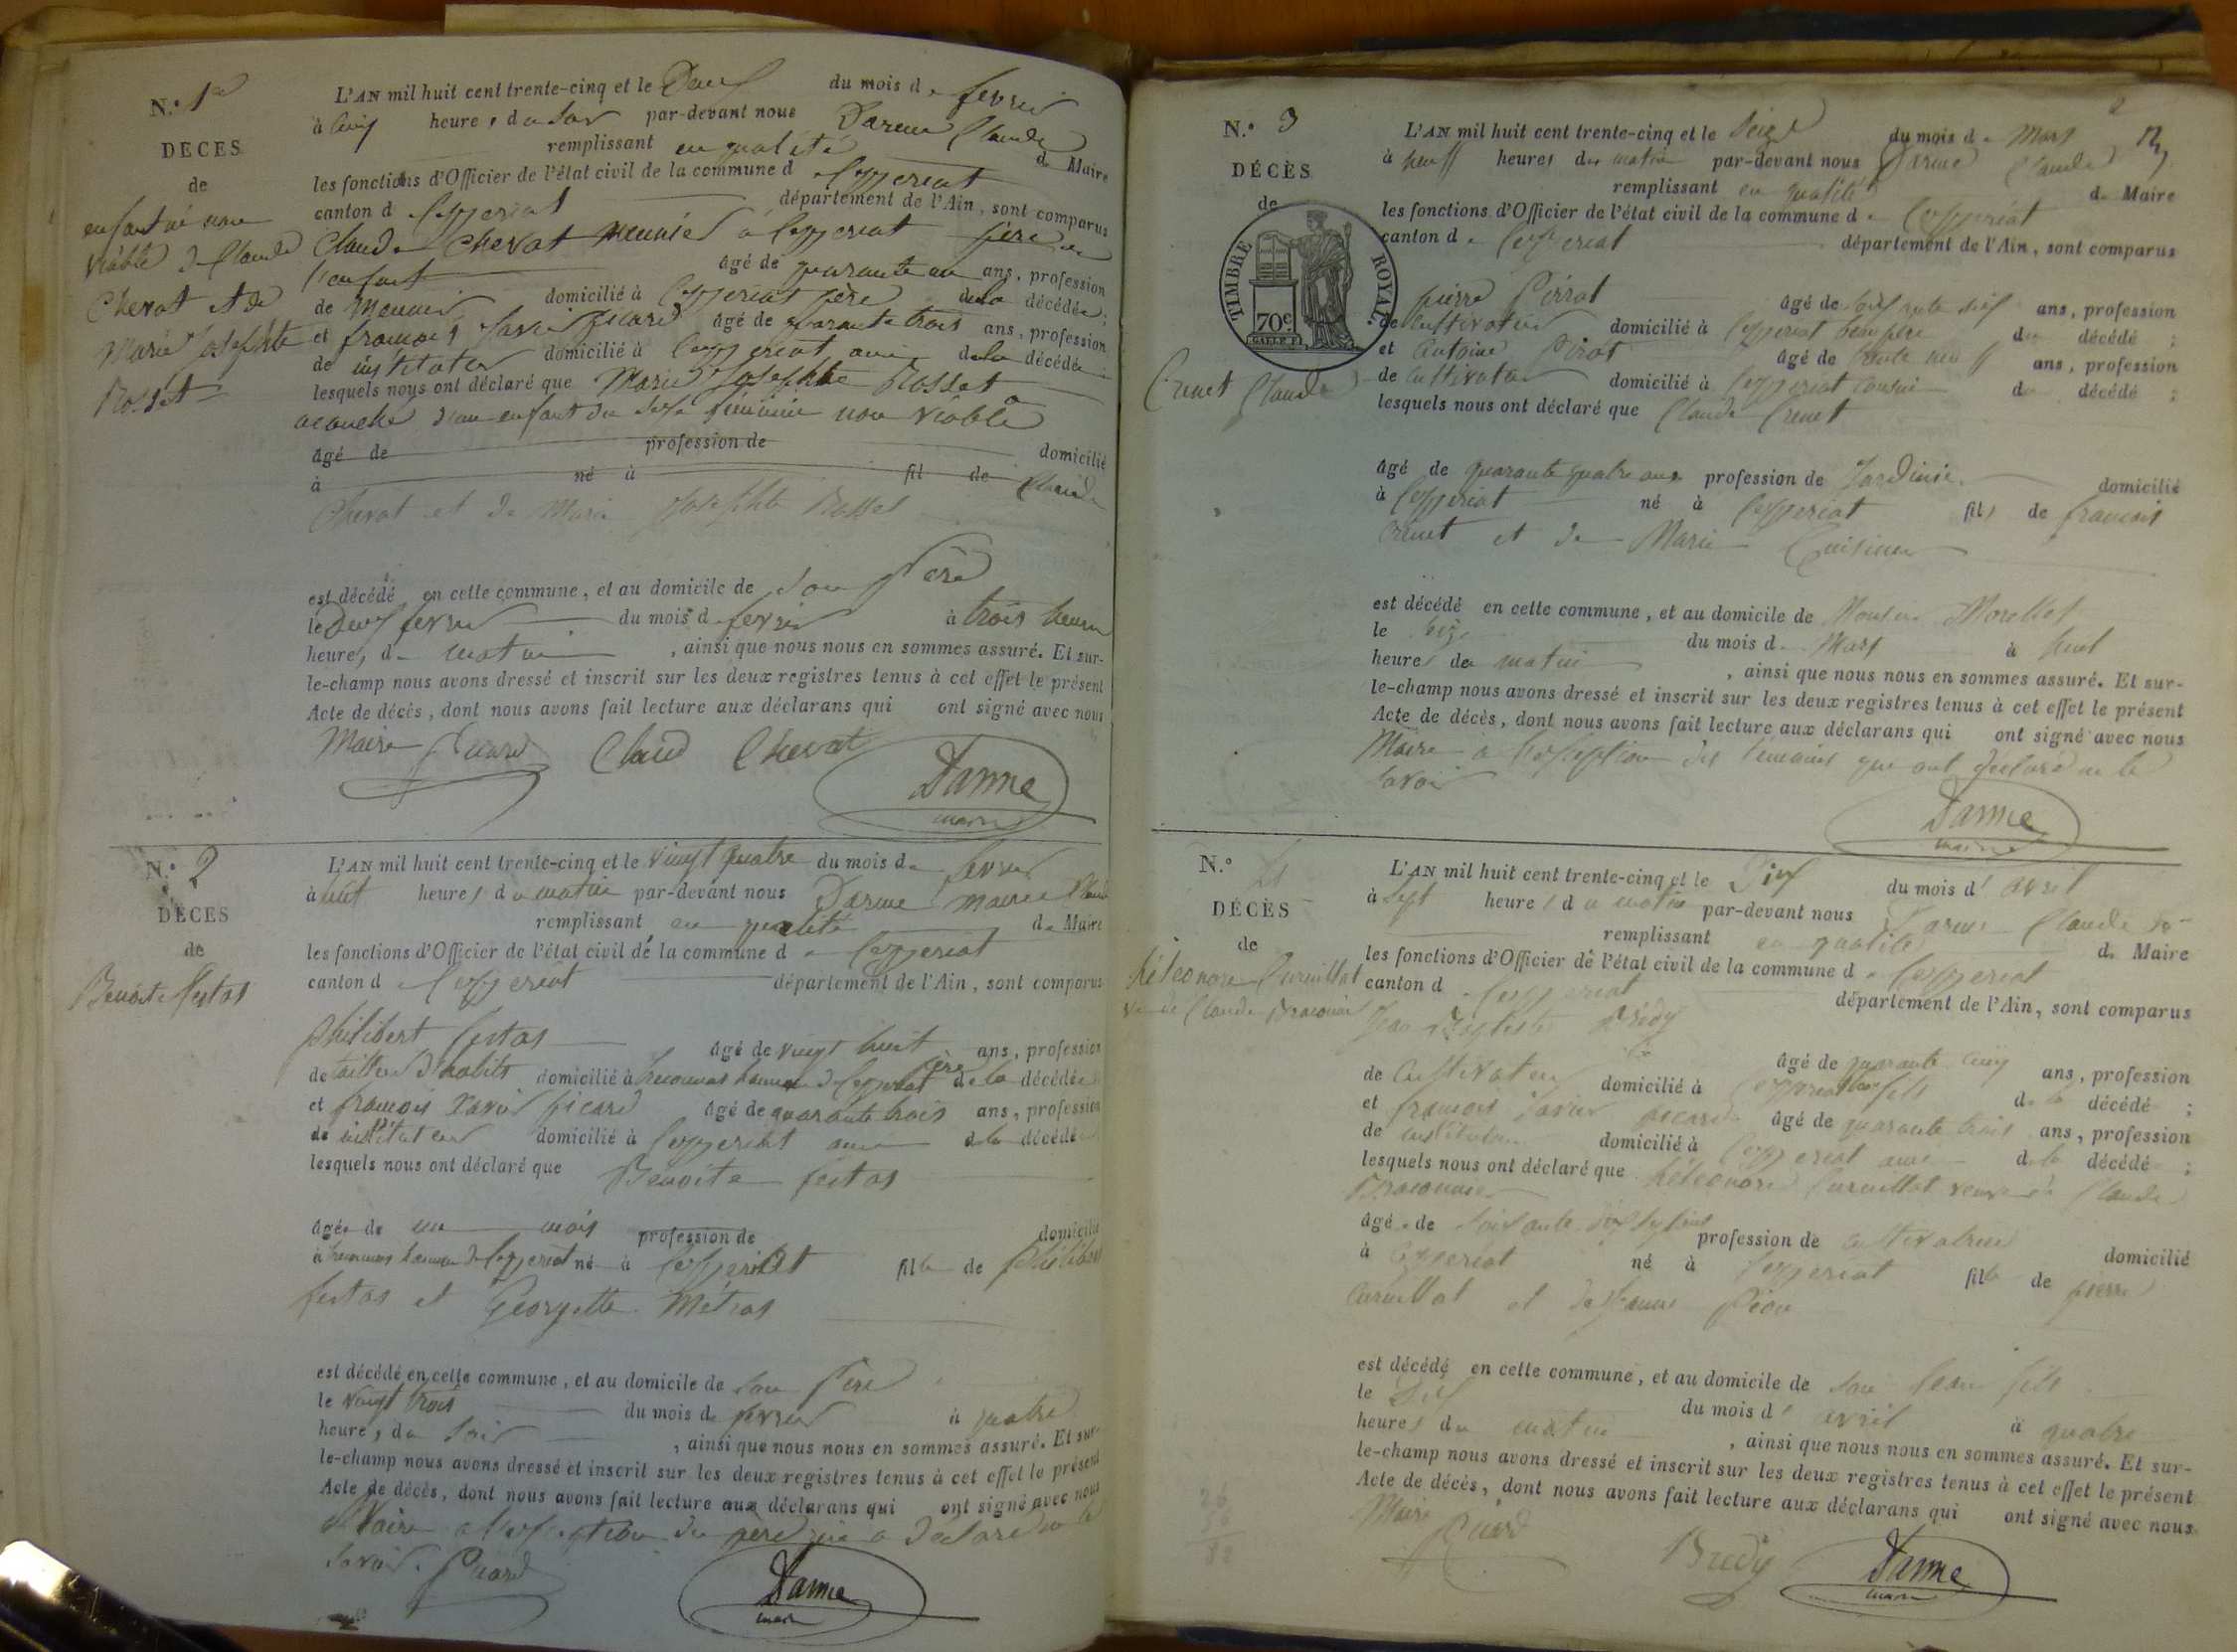 N.° 1er
DÉCÈS
de
enfant né non
viable de Claude
Chevat et de
Marie Josephte
Rosset
L'AN mil huit cent trente-cinq et le Deux du mois de fevrier
à cinq heures du soir par-devant nous Darme Claude
remplissant en qualité de Maire
les fonctions d'Officier de l'état civil de la commune de Ceyzeriat
canton de Ceyzeriat département de l'Ain, sont comparus
Claude Chevat meunier à Ceyzeriat père de
l'enfant âgé de quarante un ans, profession
de Meunier domicilié à Ceyzeriat père de la décédée;
et françois Xavier picard âgé de quarante trois ans, profession
de instituteur domicilié à Ceyzeriat ami de la décédée
lesquels nous ont déclaré que Marie Josephte Rosset a
acouché d'un enfant du sexe féminin non viable
âgé de profession de domicilié
à né à fil de Claude
Chevat et de Marie Josephte Rosset
est décédé en cette commune, et au domicile de son Père
le Deux fevrier du mois de fevrier à trois heures
heures du matin , ainsi que nous nous en sommes assuré. Et sur-
le-champ nous avons dressé et inscrit sur les deux registres tenus à cet effet le présent
Acte de décès, dont nous avons fait lecture aux déclarans qui ont signé avec nous
Maire Picard Claud Chevat
Darme
maire
N.° 2
DÉCÈS
de
Benoite festas
L'AN mil huit cent trente-cinq et le vingt quatre du mois de fevrier
à huit heures du matin par-devant nous Darme maire Claude
remplissant en qualité de Maire
les fonctions d'Officier de l'état civil de la commune de Ceyzeriat
canton de Ceyzeriat département de l'Ain, sont comparus
philibert festas âgé de vingt huit ans, profession
de tailleur d'habits domicilié à hameau de Ceyzeriat père de la décédée
et françois Xavier picard âgé de quarante trois ans, profession
de instituteur domicilié à Ceyzeriat ami de la décédée
lesquels nous ont déclaré que Benoite festas
âgée de un mois profession de domicilié
à hameau de Ceyzeriat né à Ceyzeriat fille de philibert
festas et Georgette Métras
est décédé en cette commune, et au domicile de son Père
le vingt trois du mois de fevrier à quatre
heures du soir , ainsi que nous nous en sommes assuré. Et sur-
le-champ nous avons dressé et inscrit sur les deux registres tenus à cet effet le présent
Acte de décès, dont nous avons fait lecture aux déclarans qui ont signé avec nous
Maire a l'exception du père qui a declaré ne le
savoir. Picard
Darme
maire
2
N.° 3
DÉCÈS
de
TIMBRE ROYAL
70c
Crenet Claude
L'AN mil huit cent trente-cinq et le seize du mois de Mars
à neuf heures du matin par-devant nous Darme Claude
remplissant en qualité de Maire
les fonctions d'Officier de l'état civil de la commune de Ceyzeriat
canton de Ceyzeriat département de l'Ain, sont comparus
pierre Pirrat âgé de soixante six ans, profession
de Cultivateur domicilié à Ceyzeriat beau père du décédé ;
et Antoine Pirat âgé de trente neuf ans, profession
de Cultivateur domicilié à Ceyzeriat cousin du décédé ;
lesquels nous ont déclaré que Claude Crenet
âgé de quarante quatre ans profession de Jardinier domicilié
à Ceyzeriat né à Ceyzeriat fils de françois
Crenet et de Marie Cuisinier
est décédé en cette commune, et au domicile de Monsieur Morellet
le seize du mois de Mars à huit
heures du matin , ainsi que nous nous en sommes assuré. Et sur-
le-champ nous avons dressé et inscrit sur les deux registres tenus à cet effet le présent
Acte de décès, dont nous avons fait lecture aux déclarans qui ont signé avec nous
Maire à l'exception des temoins qui ont declaré ne le
savoir
Darme
maire
N.° 4
DÉCÈS
de
héléonore Curnillat
veuve Claude Braconnier
L'AN mil huit cent trente-cinq et le Dix du mois d'avril
à sept heures du matin par-devant nous Darme Claude
remplissant en qualité de Maire
les fonctions d'Officier de l'état civil de la commune de Ceyzeriat
canton de Ceyzeriat département de l'Ain, sont comparus
Jean Baptiste Brédy
âgé de quarante cinq ans, profession
de Cultivateur domicilié à Ceyzeriat beau fils de la décédé ;
et françois Xavier picard âgé de quarante trois ans, profession
de instituteur domicilié à Ceyzeriat ami de la décédé ;
lesquels nous ont déclaré que héléonore Curnillat veuve de Claude
Braconnier
âgé de soixante dix sept ans profession de cultivatrice domicilié
à Ceyzeriat né à Ceyzeriat fille de pierre
Curnillat et de Jeanne Péon
est décédé en cette commune, et au domicile de son beau fils
le Dix du mois d'avril à quatre
heures du matin , ainsi que nous nous en sommes assuré. Et sur-
le-champ nous avons dressé et inscrit sur les deux registres tenus à cet effet le présent
Acte de décès, dont nous avons fait lecture aux déclarans qui ont signé avec nous
Maire
Picard Bredy Darme
maire